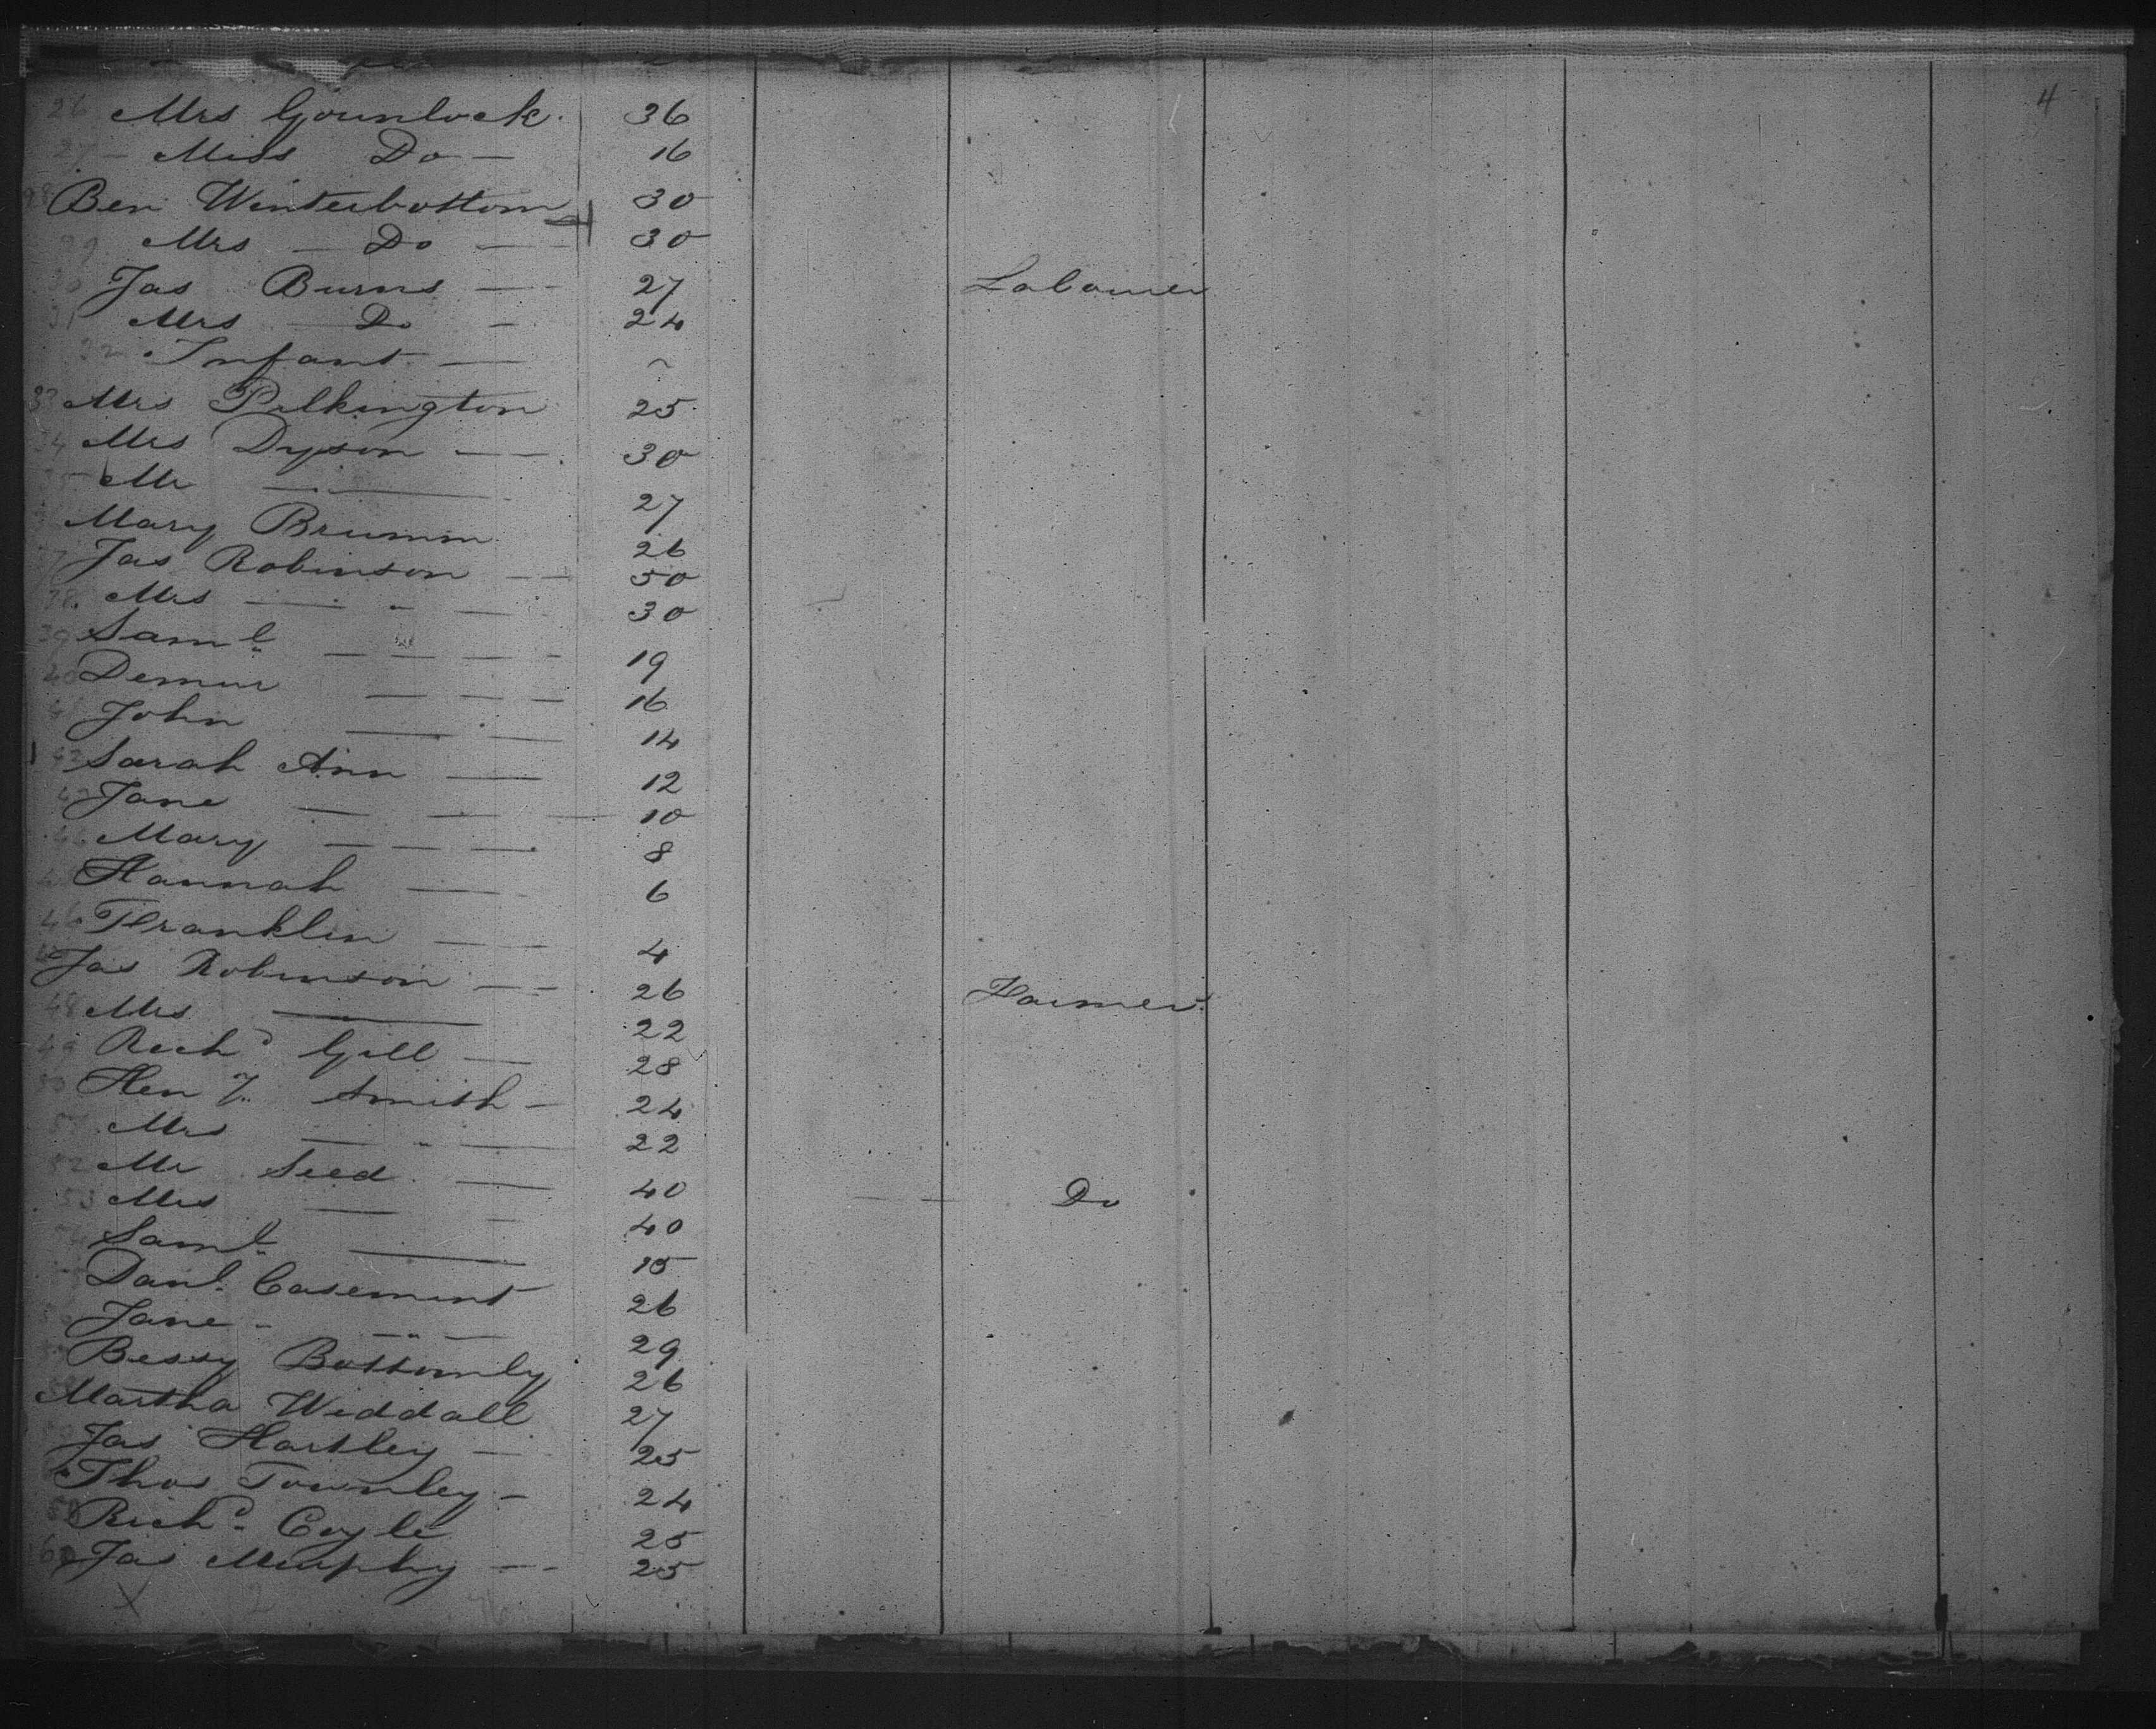 4
26 Mrs Gounlock 36
27 - Miss Do - 16
28 Ben Winterbottom 30
29 Mrs - Do - 30
30 Jas Burns - 27 Labourer
31 Mrs Do - 24
32 Infant - ~
33 Mrs Pilkington 25
34 Mrs Dyson - 30
35 Mr - 27
Mary Brumm 26
37 Jas Robinson - 50
38. Mrs - " - 30
39 Saml - 19
40 - 16
41 John - 14
42 Sarah Ann - 12
43 Jane - 10
44 Mary - 8
Hannah - 6
46 Franklin - 4
Jas Robinson - 26 Farmer
48 Mrs - 22
49 Richd Gill - 28
50 Hen J. Smith - 24
51 Mrs - " - 22
52 Mr Seed - 40 Do
53 Mrs - 40
Saml - 15
Danl. Casement 26
Jane - " - 29
Bessy Bottomly 26
Martha Widdall 27
Jas Hartley - 25
Thos Townley - 24
Richd. Coyle 25
60 Jas Murphy - 25
X